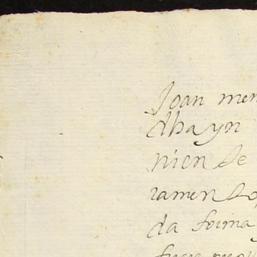 Joan men
dhayn
nien de
ramen do
da forma